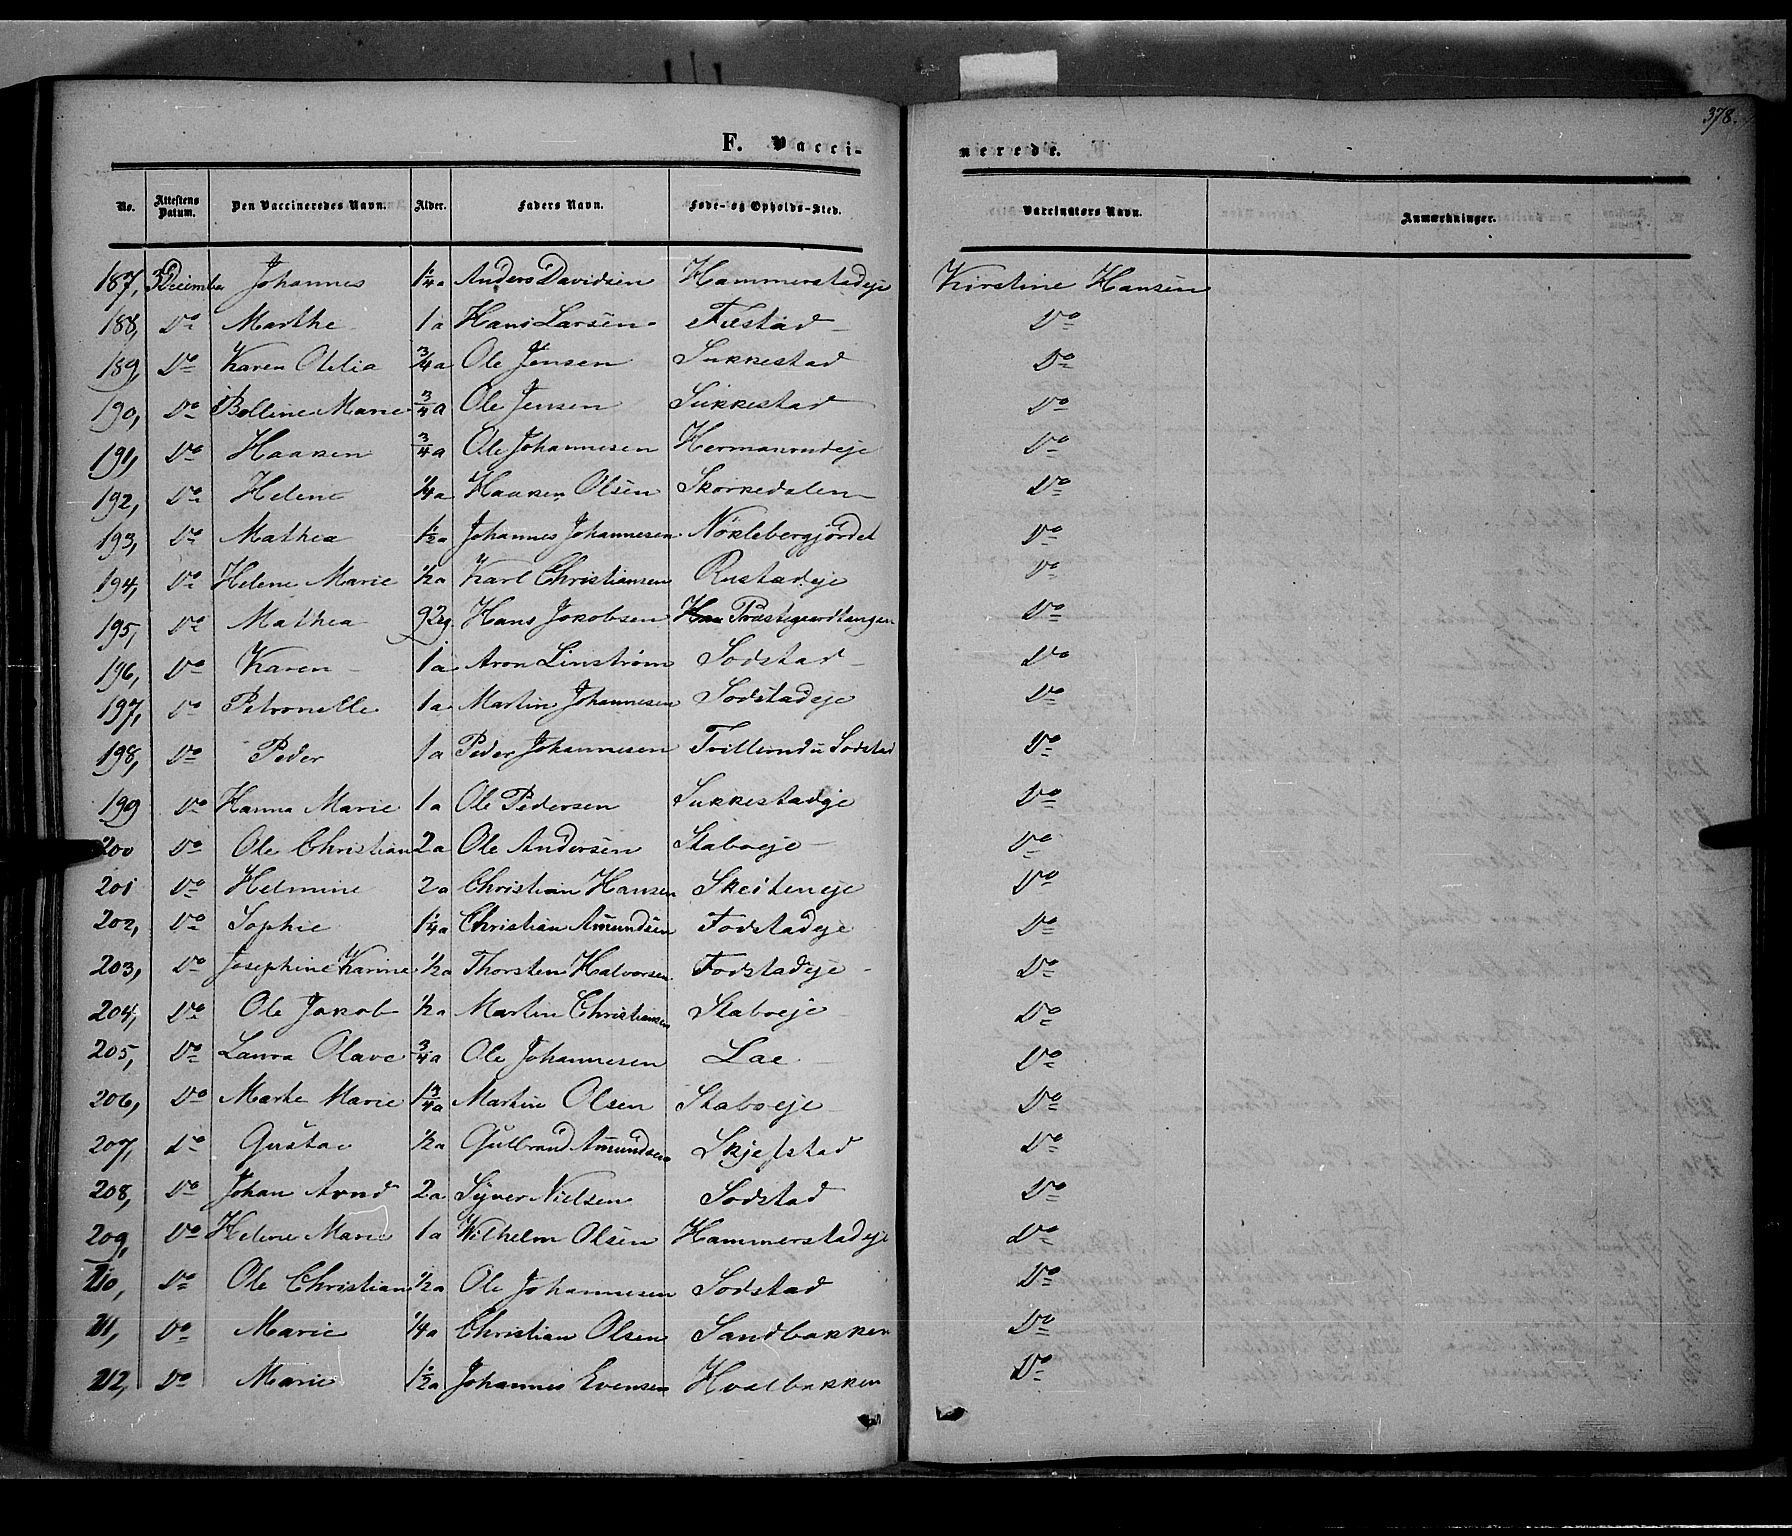 378.
F. Vacci-
nerede.
No. Attestens Datum. Den Vaccineredes Navn. Alder. Faders Navn. Føde- og Opholds-Sted. Vaccinators Navn. Anmærkninger.
187, Johannes 1/4a Anders Davidsen Hammerstadeje Kirstine Hansen
188, Do Marthe 1a Hans Larsen Do
189, Do Karen Otilia 3/4a Ole Jensen Sukkestad Do
190, Do Bolline Marie 3/4a Ole Jensen Sukkestad Do
191, Do Haaken 3/4a Ole Johannesen Hermanrudeje Do
192, Do Helene 1/4a Haaken Olsen Skorkedalen Do
193, Do Mathea 1/2a Johannes Johannesen Nöklebergjördet Do
194, Do Helene Marie 1/2a Karl Christiansen Rustadeje Do
195, Do Mathea Hans Jakobsen Præstegaardtangen Do
196, Do Karen 1a Aron Linstrøm Sodstad Do
197, Do Petronelle 1a Martin Johannesen Sodstadeje Do
198, Do Peder 1a Peder Johannesen Sodstad Do
199 Do Hanna Marie 1a Ole Pedersen Sukkestadeje Do
200 Do Ole Christian 2a Ole Andersen Staboeje Do
201 Do Helmine 2a Christian Hansen Skeiteneje Do
202, Do Sophie 1/4a Christian Amundsen Fodstadeje Do
203, Do Josephine Karine 1/2a Thorsten Halvorsen Fodstadeje Do
204, Do Ole Jakob 1/2a Martin Christiansen Staboeje Do
205, Do Laura Olave 3/4a Ole Johannesen Lae Do
206, Do Marte Marie 1 3/4a Martin Olsen Staboeje Do
207, Do Gustav 1/2a Gulbrand Amundsen Skjefstad Do
208, Do Johan Arnd 2a Syver Nielsen Sodstad Do
209, Do Helene Marie 1a Wilhelm Olsen Hammerstadeje Do
210, Do Ole Christian 1/2a Ole Johannesen Sodstad Do
211, Do Marie 1/4a Christian Olsen Sandbakken Do
212, Do Marie 1/2a Johannes Evensen Hvalbakken Do